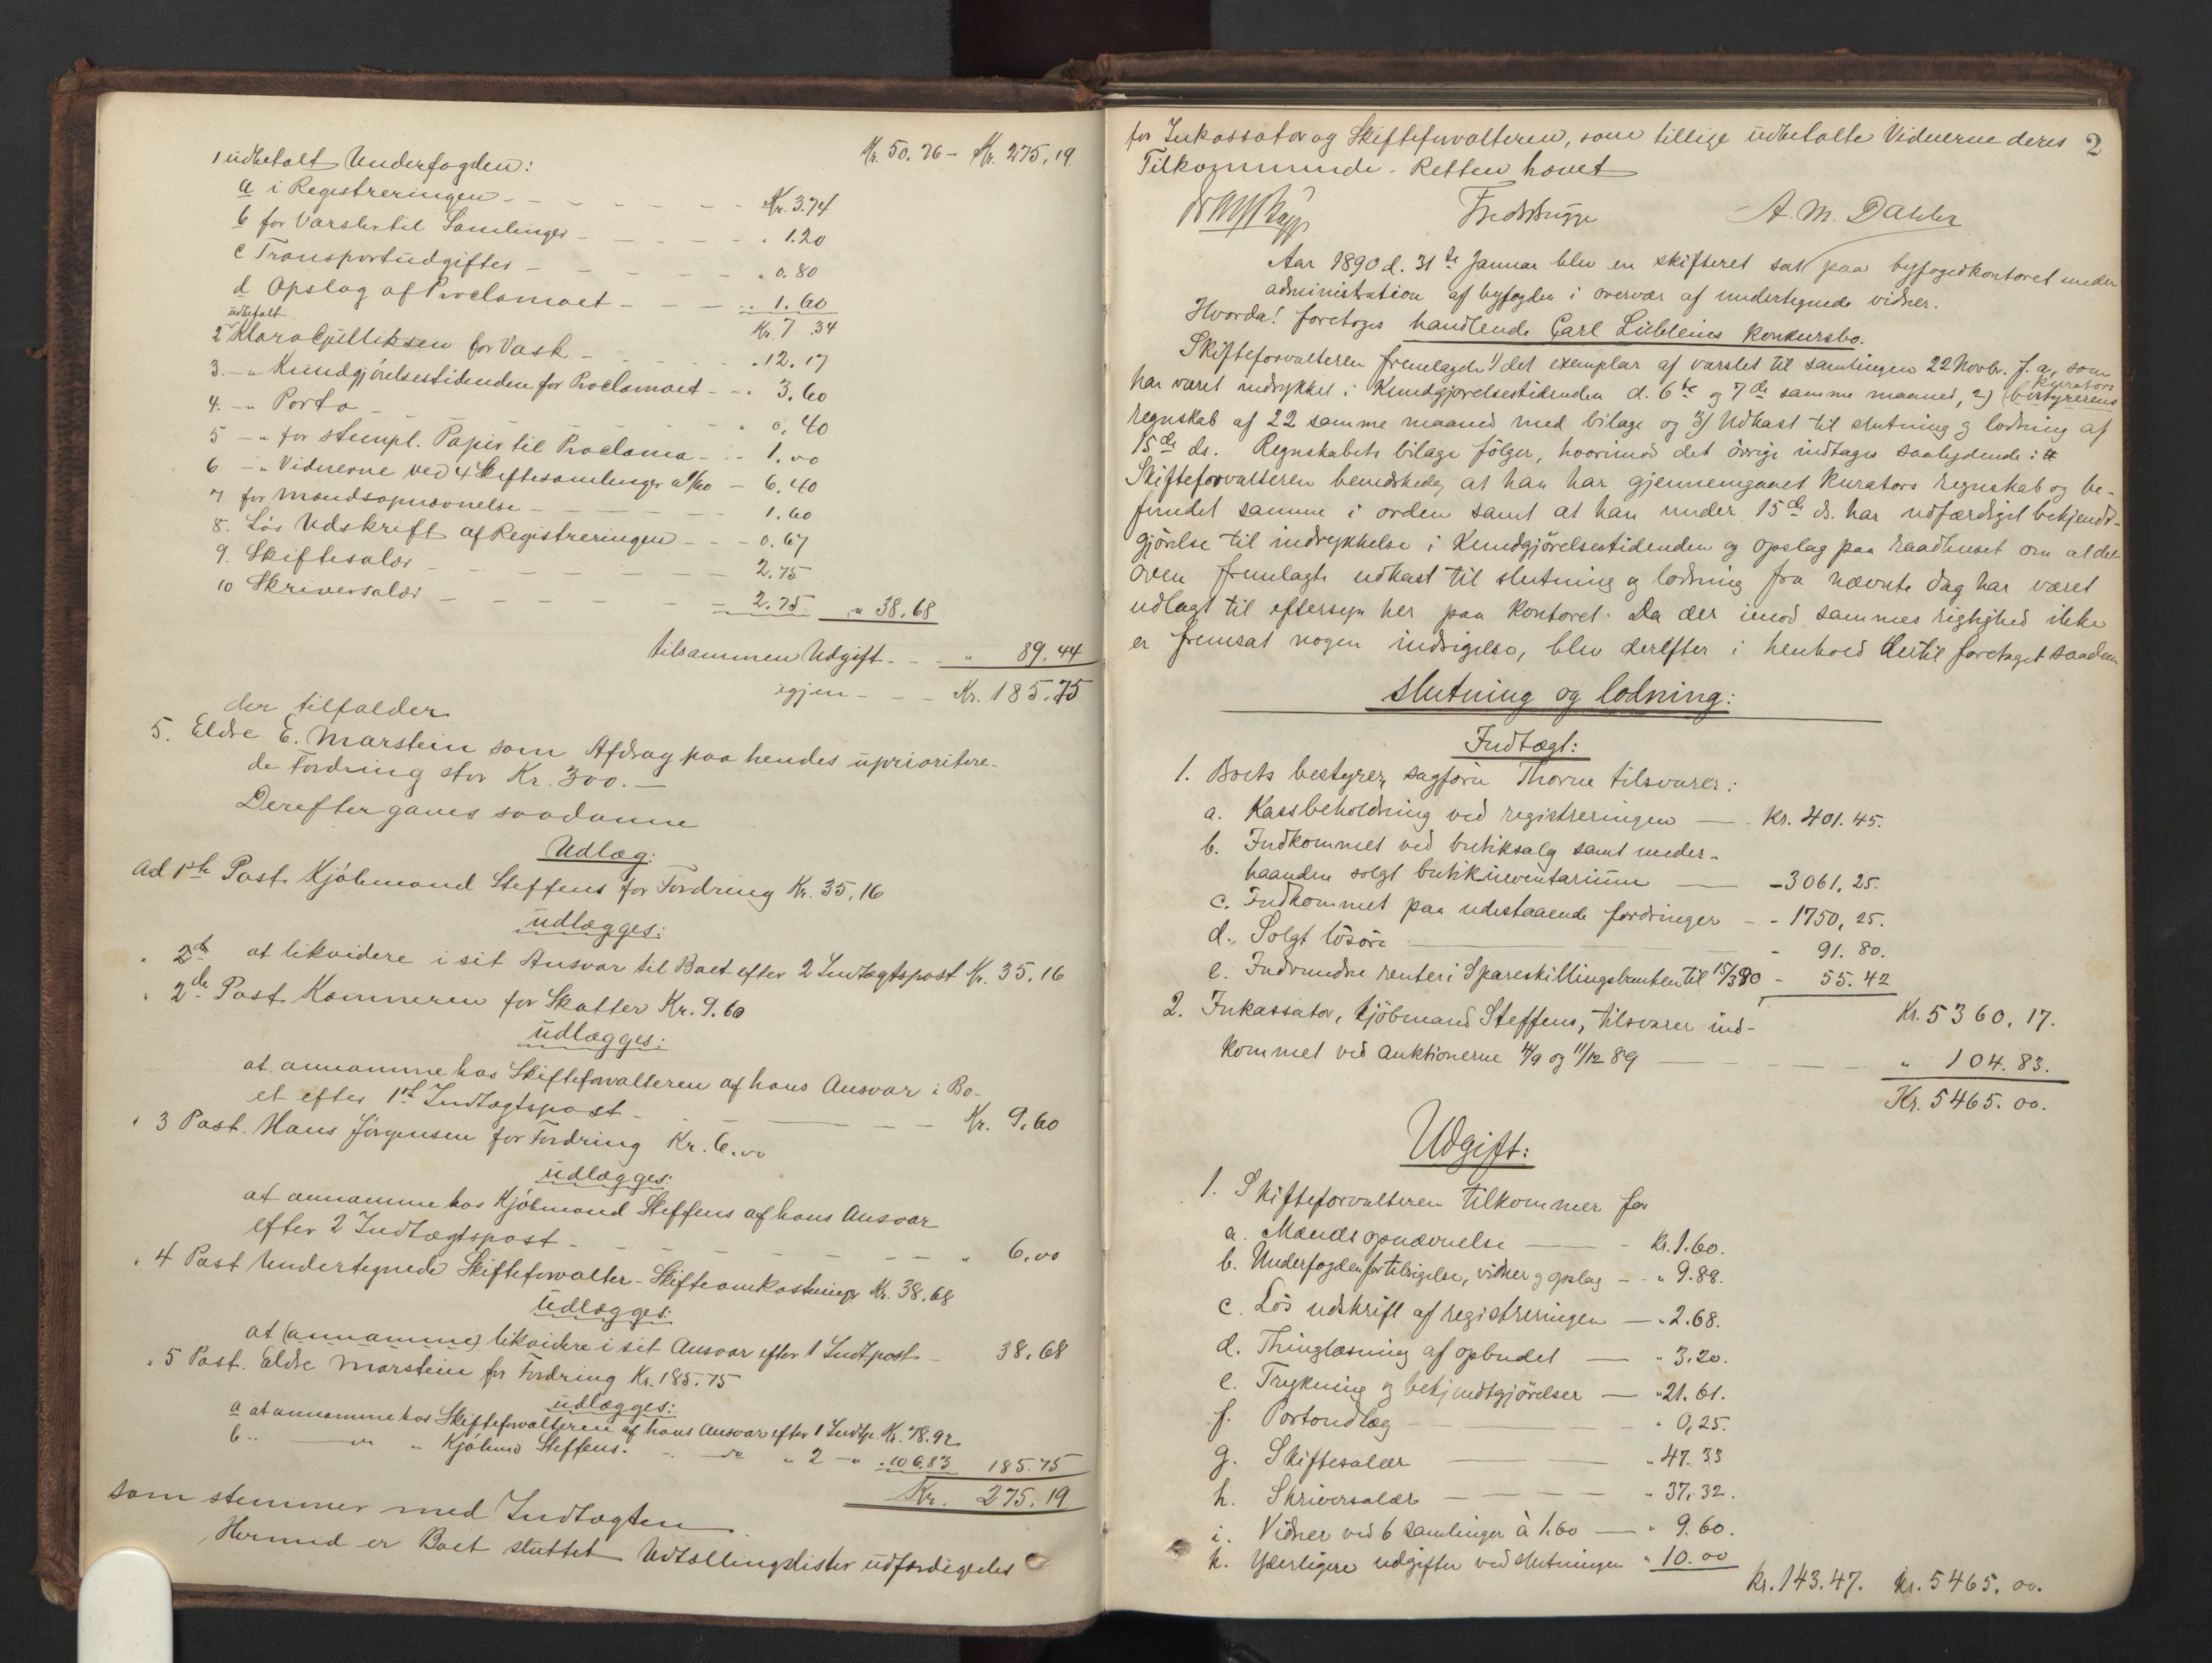 Kr. 50.76 - Kr. 275,19
1 udbetalt Underfogden:
a i Registreringen - - - - - Kr. 3.74
b for Varsler til Samlinger - - - - " 1.20
c Transportudgifter - - - - - " 0.80
d Opslag af Proclamaet - - - " 1.60
Kr. 7.34
udbetalt
2 Klara Gulliksen for Vask - - - - " 12.17
3. - " Kundgjørelsestidenden for Proclamaet - - " 3.60
4. - " Porto - - - - - " 0,40
5 - " for stempl. Papir til Proclama - - " 1.00
6 - " Vidnerne ved 4 Skiftesamlinger a 1/60 - 6.40
7 for Mandsopnævnelse - - - - - 1.60
8. Løs Udskrift af Registreringen - - - 0.67
9. Skiftesalær - - - - - - 2.75
10 Skriversalær - - - - - = 2.75 " 38.68
tilsammen Udgift - - - " 89.44
igjen - - - Kr. 185.75
der tilfalder
5. Eldre E. Marstein som Afdrag paa hendes uprioritere-
de Fordring stor Kr. 300. -
Derefter gaves saadanne
Udlæg:
Ad 1ste Post. Kjøbmand Steffens for Fordring Kr. 35,16
udlægges:
at likvidere i sit Ansvar til Boet efter 2 Indtægtspost Kr. 35.16
" 2de Post Kæmneren for Skatter Kr. 9.60
udlægges:
at annamme hos Skifteforvalteren af hans Ansvar i Bo-
et efter 1ste Indtægtspost - - - - Kr. 9.60
" 3 Post. Hans Jørgensen for Fordring Kr. 6.00
udlægges:
at annamme hos Kjøbmand Steffens af hans Ansvar
efter 2 Indtægtspost - - - - - - " 6.00
" 4 Post Undertegnede Skifteforvalter - Skifteomkostninger Kr. 38.68
udlægges:
at (annamme) likvidere i sit Ansvar efter 1 Indt.post - 38.68
" 5 Post. Eldre Marstein for Fordring Kr. 185.75
udlægges:
a at annamme hos Skifteforvalteren af hans Ansvar efter 1 Indtp. Kr. 78.92
b " - " - " Kjøbmd Steffens. - " - " 2 - " . 106.83 185.75
Kr. 275.19
som stemmer med Indtægten.
Hermed er Boet sluttet Udtællingslister udfærdigedes
2
for Inkassator og Skifteforvalteren, som tillige udbetalte Vidnerne deres
Tilkommende. Retten hævet
Fredr Bugge A. M. Dahler
Aar 1890 d. 31te Januar blev en skifteret sat paa byfogedkontoret under
administration af byfogden i overvær af undertegnede vidner.
Hvorda! foretoges handlende Carl Lübleins konkursbo.
Skifteforvalteren fremlagde 1) det exemplar af varslet til samlingen 22 Novbr. f. a, som
kurators
har været indrykket i Kundgjørelsestidenden d. 6te og 7de samme maaned, 2) (bestyrerens
regnskab af 22 samme maaned med bilage og 3) Udkast til slutning og lodning af
15de ds. Regnskabets bilage følger, hvorimod det øvrige indtages saalydende:
Skifteforvalteren bemærkede, at han har gjennemgaaet kurators regnskab og be-
fundet samme i orden samt at han under 15de ds. har udfærdiget bekjendt-
gjørelse til indrykkelse i Kundgjørelsestidenden og opslag paa raadhuset om at det
oven fremlagte udkast til slutning og lodning fra nævnte dag har været
udlagt til eftersyn her paa kontoret. Da der imod sammes rigtighed ikke
er fremsat nogen indsigelse, blev derefter i henhold dertil foretaget saadan
slutning og lodning:
Indtægt:
1. Boets bestyrer, sagfører Thorne tilsvarer:
a. Kassbeholdning ved registreringen — Kr. 401.45.
b. Indkommet ved butiksalg samt under-
haanden solgt butikinventarium — - 3061,25.
c. Indkommet paa udestaaende fordringer - - 1750,25.
d. Solgt løsøre — - 91.80.
e. Indvundne renter i Spareskillingsbanken til 15/3 90 - 55.42
Kr. 5360,17.
2. Inkassator, kjøbmand Steffens, tilsvarer ind-
kommet ved auktionerne 4/9 og 11/12 89 — " 104.83.
Kr. 5465.00.
Udgift:
1. Skifteforvalteren tilkommer for
a. Mændsopnævnelse — - Kr. 1.60.
b. Underfogden for tilsigelse, vidner og opslag - - " 9.88.
c. Løs udskrift af registreringen — " 2.68.
d. Thinglæsning af opbudet — " 3.20.
e. Trykning og bekjendtgjørelser — " 21.61.
f. Portoudlæg — " 0,25.
g. Skiftesalær — " 47.33
h. Skriversalær — " 37.32.
i. Vidner ved 6 samlinger à 1.60 — " 9.60.
k. Yderligere udgifter ved slutningen " 10.00
Kr. 143.47. Kr. 5465.00.